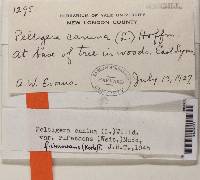 1295
HERBARIUM OF YALE UNIVERSITY
NEW LONDON COUNTY
Peltigera canina (L.) Hoffm.
At base of tree in woods. East Lyme
A.W. Evans. July 13, 1927
Peltigera canina (L.) Willd.
var. rufescens (Weis.) Mudd,
f. innovans (Koerb.) J.W.T., 1948